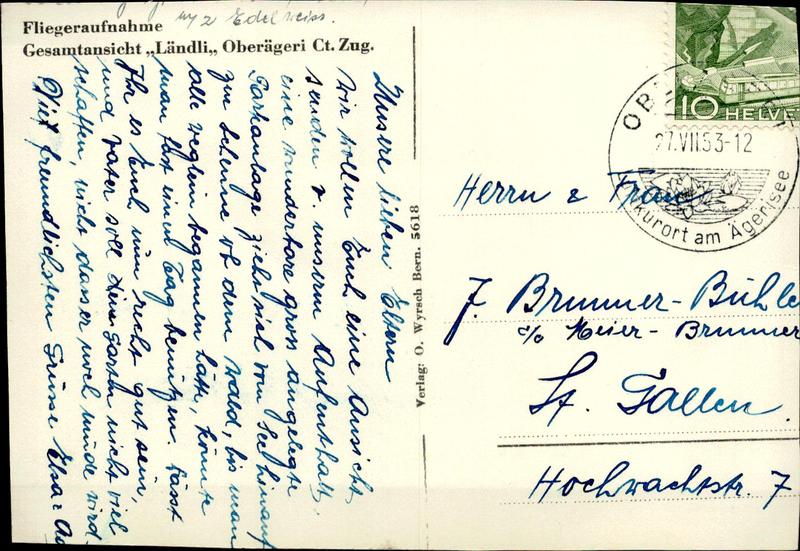 my 2 Edelweiss.
Fliegeraufnahme
Gesamtansicht „Ländli„ Oberägeri Ct. Zug.
Unsere lieben Eltern
Wir wollen Euch eine Ansicht
senden v. unserm Aufenthalt,
eine wunderbare gross angelegte
Parkanlage zieht sich vom See hinauf
zur Scheune ob dem Wald, bis man
alle Weglein begannen hätte, könnte
man fast einen Tag benützen. Lasst
Ihr es Euch nun recht gut sein,
und Vater soll dem Garten nicht viel
schaffen, nicht dass er wol müde wird.
Viel freundlichsten Grüsse Elsa &
Verlag: O. Wyrsch Bern. 5618
10 HELVE
27.VII.53-12
kurort am Ägerisee
Herrn & Frau
J. Brunner-Bühle
c/o Meier-Brunner
St. Gallen.
Hochwachtstr. 7